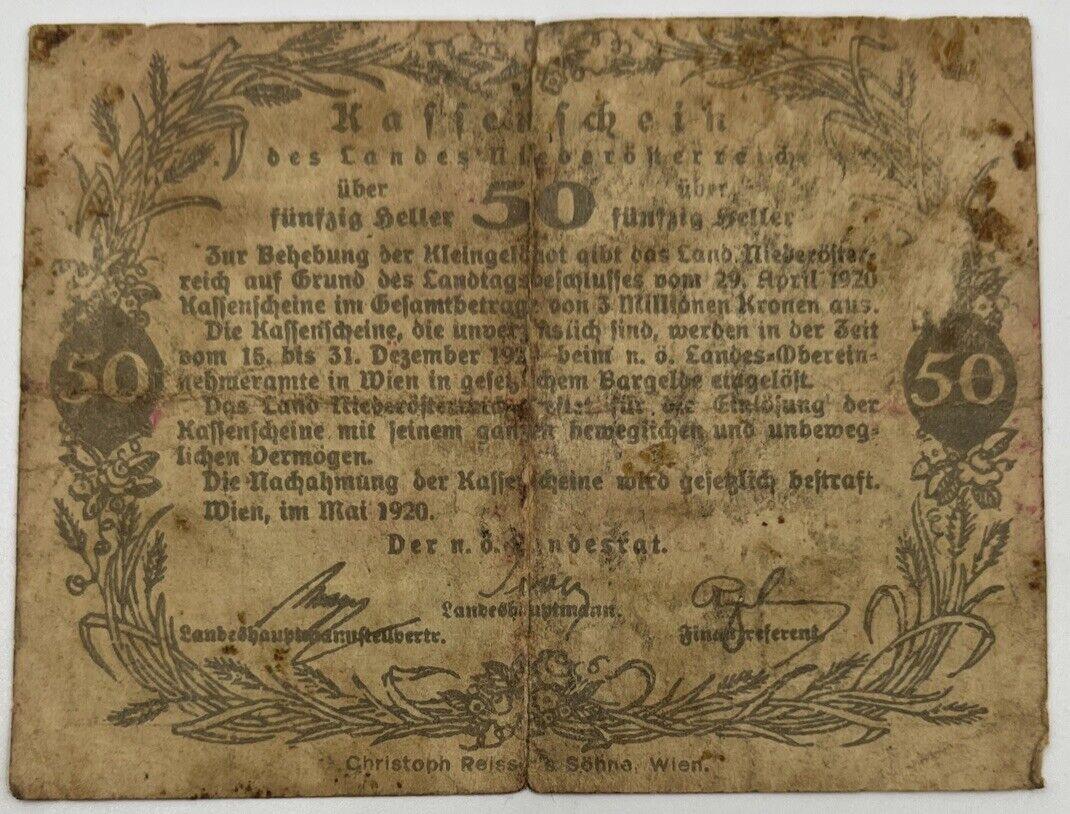 Kassenschein
des Landes Niederösterreich
über 50 über
fünfzig Heller fünfzig Heller
Zur Behebung der Kleingeldnot gibt das Land Niederöster-
reich auf Grund des Landtagsbeschlusses vom 29. April 1920
Kassenscheine im Gesamtbetrage von 3 Millionen Kronen aus.
Die Kassenscheine, die unverzinslich sind, werden in der Zeit
vom 15. bis 31. Dezember beim n. ö. Landes-Oberein-
nehmeramte in Wien in gesetzlichem Bargelde eingelöst.
50 50
Das Land Niederösterreich haftet für die Einlösung der
Kassenscheine mit seinem ganzen beweglichen und unbeweg-
lichen Vermögen.
Die Nachahmung der Kassenscheine wird gesetzlich bestraft.
Wien, im Mai 1920.
Der n. ö. Landesrat.
Landeshauptmann.
Landeshauptmannstellvertr. Finanzreferent.
Christoph Reisser's Söhne, Wien.